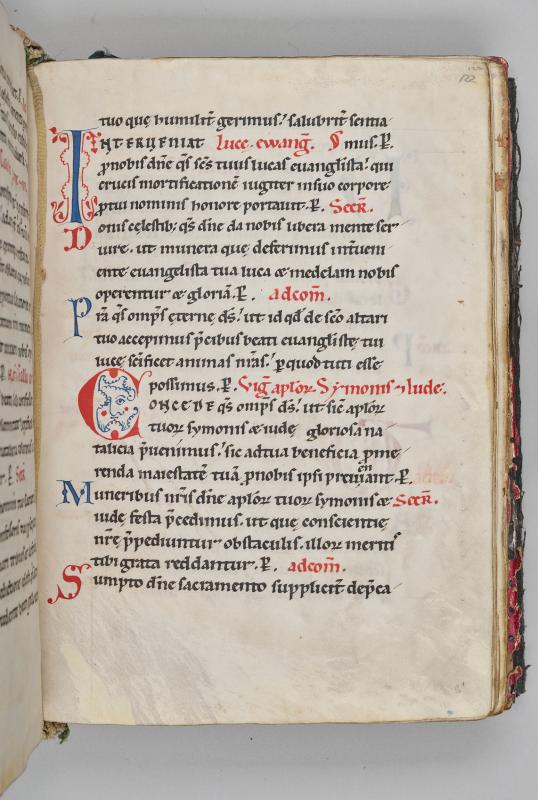 122
tuo quę humilit̃ gerimus! salubrit̃ sentia
INTERVENIAT lucę. ewanḡ. S mus. P̄.
ꝓnobis dn̄e q̄s sc̄s tuus lucas euanglista! qui
crucis mortificationē iugiter insuo corpore
ꝓtui nominis honore portauit. P̄. Secr̄.
Donis cęlestib; q̄s dn̄e da nobis libera mente ser
uire. ut munera quę deferimus int̃ueni
ente euangelista tua luca & medelam nobis
operentur & gloriā. P̄. adcom̄.
Pra q̄s omp̄s ęterne d̄s! ut id qd̄ de sc̄o altari
tuo accepimus p̄cibus beati euanglistę tui
lucę sc̄ificet animas nr̄as! ꝑquod tuti esse
possimus. P̄. Vig̃ apl̄or. Symonis ⁊ Iudę.
CONCEDE q̄s omp̄s d̄s! ut sic̄ apl̄or
tuor symonis & iudę gloriosa na
talicia p̄uenimus! sic adtua beneficia ꝓme
renda maiestatē tuā ꝓnobis ipsi preueniant. P̄.
Muneribus nr̄is dn̄e apl̄or tuor symonis & Secr̄.
iudę festa p̄cedimus. ut que conscientię
nr̄e p̄pediuntur obstaculis. illor meritis
tibi grata reddantur. P̄. adcom̄.
Sumpto dn̄e sacramento supplicit̃ dep̄ca